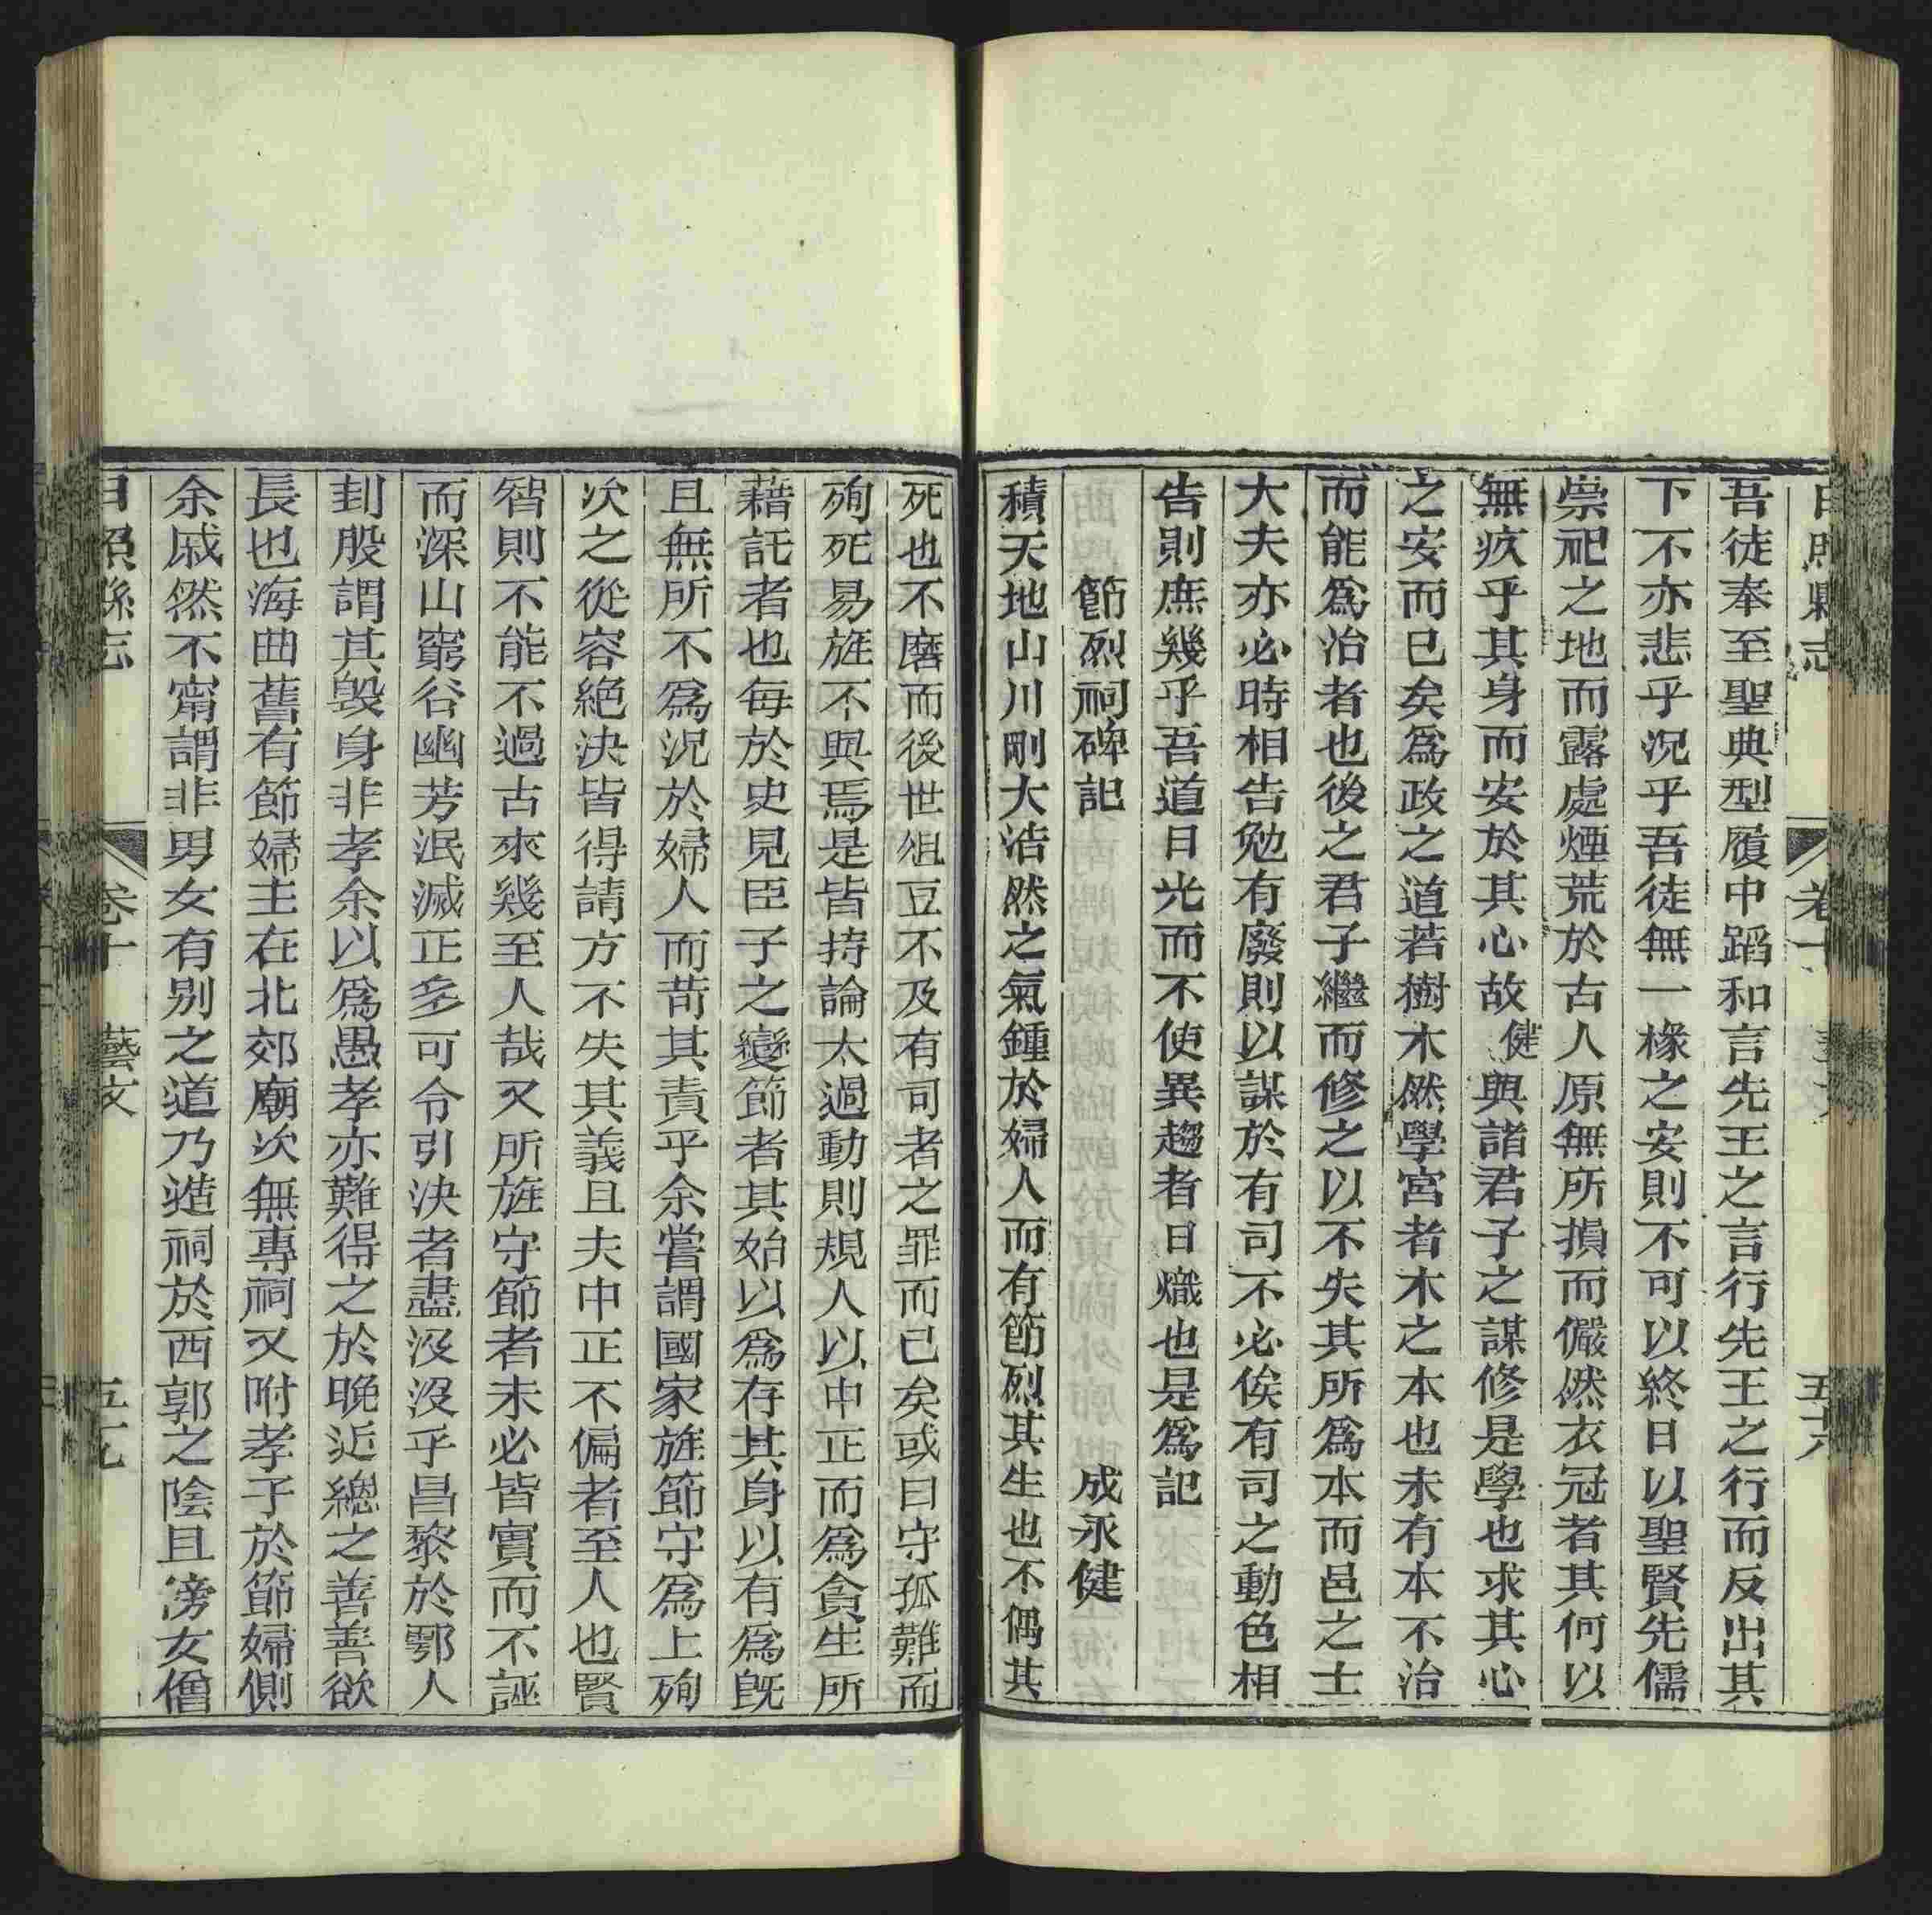 日照縣志
卷十
五六
吾徒奉至聖典型履中蹈和言先王之言行先王之行而反出其
下不亦悲乎況乎吾徒無一椽之安則不可以終日以聖賢先儒
崇祀之地而露處煙荒於古人原無所損而儼然衣冠者其何以
無疚乎其身而安於其心故健與諸君子之謀修是學也求其心
之安而已矣爲政之道若樹木然學宮者木之本也未有本不治
而能爲治者也後之君子繼而修之以不失其所爲本而邑之士
大夫亦必時相告勉有廢則以謀於有司不必俟有司之動色相
告則庶幾乎吾道日光而不使異趨者日熾也是爲記
節烈祠碑記 成永健
積天地山川剛大浩然之氣鍾於婦人而有節烈其生也不偶其
死也不磨而後世俎豆不及有司者之罪而已矣或曰守孤難而
殉死易旌不與焉是皆持論太過動則規人以中正而爲貪生所
藉託者也每於史見臣子之變節者其始以爲存其身以有爲旣
且無所不爲況於婦人而苛其責乎余嘗謂國家旌節守爲上殉
次之從容絕決皆得請方不失其義且夫中正不偏者至人也賢
智則不能不過古來幾至人哉又所旌守節者未必皆實而不誣
而深山窮谷幽芳泯滅正多可令引決者盡沒沒乎昌黎於鄠人
刲股謂其毀身非孝余以爲愚孝亦難得之於晚近總之善善欲
長也海曲舊有節婦主在北郊廟次無專祠又附孝子於節婦側
余戚然不甯謂非男女有別之道乃造祠於西郭之陰且滂女僧
日照縣志
卷十 藝文
五七